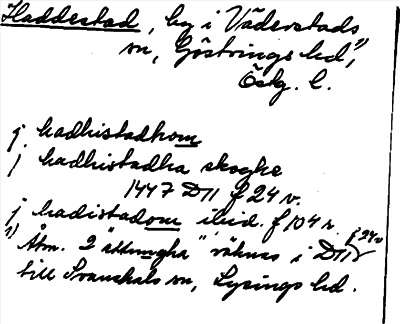 Haddestad, by i Väderstads
sn, Göstrings hd,¹⁾
Östg. l.
j hadhistadhom
j hadhistadha skoghe
1447 D11 f 24 v.
j hadistadom ibid. f 104 r.
¹⁾ Åtm. 2 "attungha" räknas i D11 f 24v
till Svanshals sn, Lysings hd.